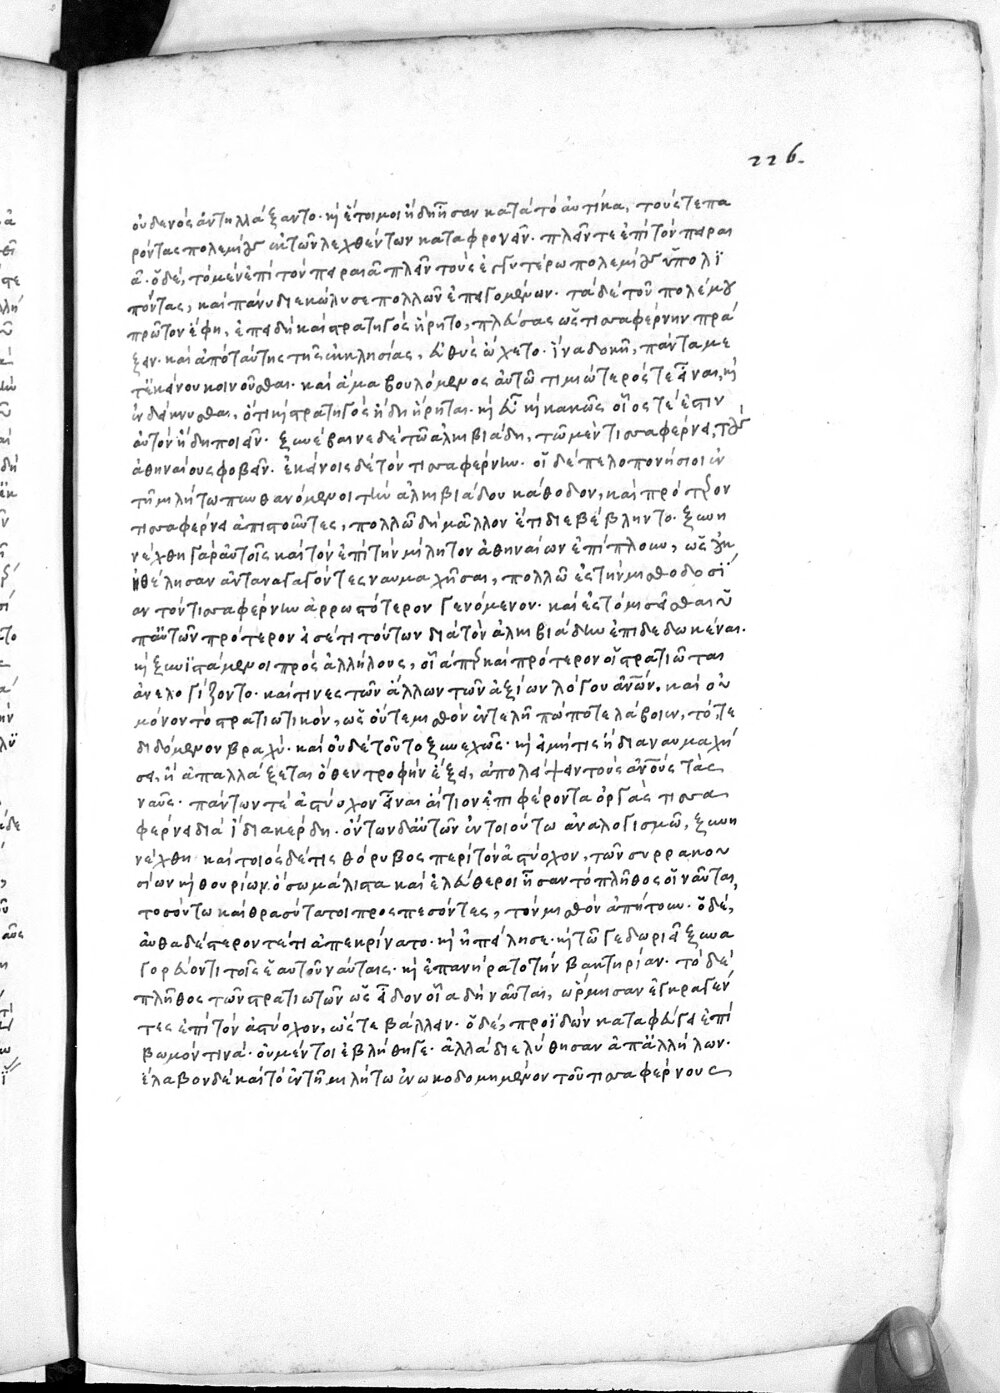 226.
οὐδενὸς ἀντηλλάξαντο· κὴ ἕτοιμοι ἤδη ἦσαν κατὰ τὸ αὐτίκα, τούς τε πα
ρόντας πολεμίους ἐκ τῶν λεχθέντων καταφρονεῖν. πλεῖν τε ἐπὶ τὸν πειραι
ᾶ. ὁ δέ, τὸ μὲν ἐπὶ τὸν πειραιᾶ πλεῖν τοὺς ἐγγυτέρω πολεμίους ὑπολι
πόντας, καὶ πάνυ διεκώλυσε πολλῶν ἐπειγομένων. τὰ δὲ τοῦ πολέμου
πρῶτον ἔφη, ἐπειδὴ καὶ στρατηγὸς ᾕρητο, πλεύσας ὡς τισσαφέρνην πρά
ξειν. καὶ ἀπὸ ταύτης τῆς ἐκκλησίας, εὐθὺς ᾤχετο. ἵνα δοκῇ, πάντα με
τ' ἐκείνου κοινοῦσθαι. καὶ ἅμα βουλόμενος αὐτῷ τιμιώτερός τε εἶναι, κὴ
ἐνδείκνυσθαι, ὅτι κὴ στρατηγὸς ἤδη ᾕρηται. κὴ εὖ κὴ κακῶς οἷός τέ ἐστιν
αὐτὸν ἤδη ποιεῖν. ξυνέβαινε δὲ τῷ ἀλκιβιάδῃ, τῷ μὲν τισσαφέρνει, τοὺς
ἀθηναίους φοβεῖν. ἐκείνοις δὲ τὸν τισσαφέρνην. οἱ δὲ πελοπονήσιοι ἐν
τῇ μιλήτῳ πυνθανόμενοι τὴν ἀλκιβιάδου κάθοδον, καὶ πρότερον
τισσαφέρνει ἀπιστοῦντες, πολλῷ δὴ μᾶλλον ἔτι διεβέβληντο. ξυνη
νέχθη γὰρ αὐτοῖς καὶ τὸν ἐπὶ τὴν μίλητον ἀθηναίων ἐπίπλουν, ὡς οὐκ
ἠθέλησαν ἀνταναγαγόντες ναυμαχῆσαι, πολλῷ ἐς τὴν μισθοδοσί
αν τὸν τισσαφέρνην ἀρρωστότερον γενόμενον. καὶ ἐς τὸ μισεῖσθαι ὑ
π' αὐτῶν πρότερον εἰσέτι τούτων διὰ τὸν ἀλκιβιάδην ἐπιδεδωκέναι.
κὴ ξυνϊστάμενοι πρὸς ἀλλήλους, οἷά περ καὶ πρότερον οἱ στρατιῶται
ἀνελογίζοντο. καί τινες τῶν ἄλλων τῶν ἀξίων λόγου ἀνῶν. καὶ οὐ
μόνον τὸ στρατιωτικόν, ὡς οὔτε μισθὸν ἐντελῆ πώποτε λάβοιεν, τό, τε
διδόμενον βραχύ. καὶ οὐδὲ τοῦτο ξυνεχῶς. κὴ εἰ μή τις ἢ διαναυμαχή
σει, ἢ ἀπαλλάξεται ὅθεν τροφὴν ἕξει, ἀπολείψειν τοὺς ἀνοὺς τὰς
ναῦς. πάντων τε ἀστύοχον εἶναι αἴτιον ἐπιφέροντα ὀργὰς τισσα
φέρνει διὰ ἴδια κέρδη. ὄντων δ' αὐτῶν ἐν τοιούτῳ ἀναλογισμῷ, ξυνη
νέχθη καὶ τοιόσδέ τις θόρυβος περὶ τὸν ἀστύοχον, τῶν συρρακου
σίων κὴ θουρίων. ὅσῳ μάλιστα καὶ ἐλεύθεροι ἦσαν τὸ πλῆθος οἱ ναῦται,
τοσούτῳ καὶ θρασύτατοι προσπεσόντες, τὸν μισθὸν ἀπῄτουν. ὁ δέ,
αὐθαδέστερόν τέ τι ἀπεκρίνατο. κὴ ἠπείλησε. κὴ τῷ γε δωριεῖ ξυνα
γορεύοντι τοῖς ἑαυτοῦ ναύταις. κὴ ἐπανήρατο τὴν βακτηρίαν. τὸ δὲ
πλῆθος τῶν στρατιωτῶν ὡς εἶδον οἷα δὴ ναῦται, ὥρμησαν ἐγκραγέν
τες ἐπὶ τὸν ἀστύοχον, ὥστε βάλλειν. ὁ δέ, προϊδὼν καταφεύγει ἐπὶ
βωμόν τινα. οὐ μέντοι ἐβλήθη γε. ἀλλὰ διελύθησαν ἀπ' ἀλλήλων.
ἔλαβον δὲ καὶ τὸ ἐν τῇ μιλήτῳ ἐνῳκοδομημένον τοῦ τισσαφέρνους